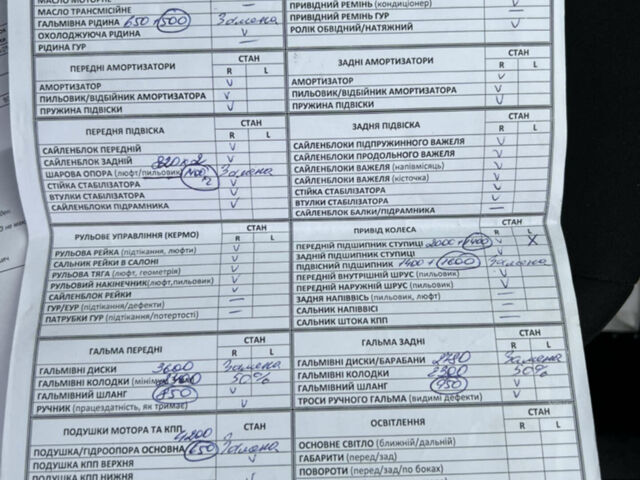 МАСЛО ТРАНСМІСІЙНЕ —
ГАЛЬМІВНА РІДИНА 650 + 500 Замена
ОХОЛОДЖУЮЧА РІДИНА V
РІДИНА ГУР —
ПРИВІДНИЙ РЕМІНЬ (кондиціонер)
ПРИВІДНИЙ РЕМІНЬ ГУР —
РОЛІК ОБВІДНИЙ/НАТЯЖНИЙ V
ПЕРЕДНІ АМОРТИЗАТОРИ СТАН
R L
АМОРТИЗАТОР V
ПИЛЬОВИК/ВІДБІЙНИК АМОРТИЗАТОРА V
ПРУЖИНА ПІДВІСКИ V
ЗАДНІ АМОРТИЗАТОРИ СТАН
R L
АМОРТИЗАТОР V
ПИЛЬОВИК/ВІДБІЙНИК АМОРТИЗАТОРА V
ПРУЖИНА ПІДВІСКИ V
ПЕРЕДНЯ ПІДВІСКА СТАН
R L
САЙЛЕНБЛОК ПЕРЕДНІЙ V
САЙЛЕНБЛОК ЗАДНІЙ 820 x 2 V
ШАРОВА ОПОРА (люфт/пильовик) Замена
СТІЙКА СТАБІЛІЗАТОРА V
ВТУЛКИ СТАБІЛІЗАТОРА V
САЙЛЕНБЛОКИ ПІДРАМНИКА V
ЗАДНЯ ПІДВІСКА СТАН
R L
САЙЛЕНБЛОКИ ПІДПРУЖИННОГО ВАЖЕЛЯ V
САЙЛЕНБЛОКИ ПРОДОЛЬНОГО ВАЖЕЛЯ V
САЙЛЕНБЛОКИ ВАЖЕЛЯ (напівмісяць) V
САЙЛЕНБЛОКИ ВАЖЕЛЯ (кісточка) V
СТІЙКА СТАБІЛІЗАТОРА V
ВТУЛКИ СТАБІЛІЗАТОРА V
САЙЛЕНБЛОК БАЛКИ/ПІДРАМНИКА —
РУЛЬОВЕ УПРАВЛІННЯ (КЕРМО) СТАН
R L
РУЛЬОВА РЕЙКА (підтікання, люфти) V
САЛЬНИК РЕЙКИ В САЛОНІ V
РУЛЬОВА ТЯГА (люфт, геометрія) V
РУЛЬОВИЙ НАКІНЕЧНИК (люфт,пильовик) V
САЙЛЕНБЛОК РЕЙКИ —
ГУР/ЕУР (підтікання/дефекти) —
ПАТРУБКИ ГУР (підтікання/потертості) —
ПРИВІД КОЛЕСА СТАН
R L
ПЕРЕДНІЙ ПІДШИПНИК СТУПИЦІ 2000 + 1400 V X
ЗАДНІЙ ПІДШИПНИК СТУПИЦІ V
ПІДВІСНИЙ ПІДШИПНИК 1400 + 1600 Замена
ПЕРЕДНІЙ ВНУТРІШНІЙ ШРУС (пильовик) V
ПЕРЕДНІЙ НАРУЖНІЙ ШРУС (пильовик) V
ЗАДНЯ НАПІВВІСЬ (пильовик, люфт) —
САЛЬНИК НАПІВВІСІ —
САЛЬНИК ШТОКА КПП —
ГАЛЬМА ПЕРЕДНІ СТАН
R L
ГАЛЬМІВНІ ДИСКИ 3600 Замена
ГАЛЬМІВНІ КОЛОДКИ 50%
ГАЛЬМІВНИЙ ШЛАНГ 850 V
РУЧНИК (працездатність, як тримає) V
ГАЛЬМА ЗАДНІ СТАН
R L
ГАЛЬМІВНІ ДИСКИ/БАРАБАНИ Замена
ГАЛЬМІВНІ КОЛОДКИ 2300 50%
ГАЛЬМІВНИЙ ШЛАНГ 950 V
ТРОСИ РУЧНОГО ГАЛЬМА (видимі дефекти) V
ПОДУШКИ МОТОРА ТА КПП СТАН
4200 R L
ПОДУШКА/ГІДРООПОРА ОСНОВНА 650 Замена
ПОДУШКА КПП ВЕРХНЯ V
ПОДУШКА КПП НИЖНЯ V
ОСВІТЛЕННЯ СТАН
R L
ОСНОВНЕ СВІТЛО (ближній/дальній)
ГАБАРИТИ (перед/зад)
ПОВОРОТИ (перед/зад/по боках)